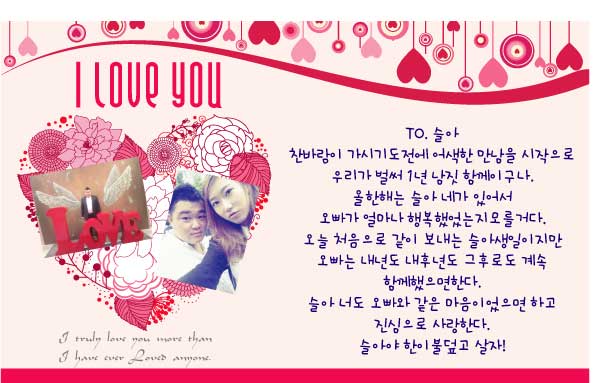 I LOVE YOU
LOVE
I truly love you more than
I have ever Loved anyone.
TO. 슬아
찬바람이 가시기도전에 어색한 만남을 시작으로
우리가 벌써 1년 남짓 함께이구나.
올한해는 슬아 네가 있어서
오빠가 얼마나 행복했었는지모를거다.
오늘 처음으로 같이 보내는 슬아생일이지만
오빠는 내년도 내후년도 그후로도 계속
함께했으면한다.
슬아 너도 오빠와 같은 마음이었으면 하고
진심으로 사랑한다.
슬아야 한이불덮고 살자!